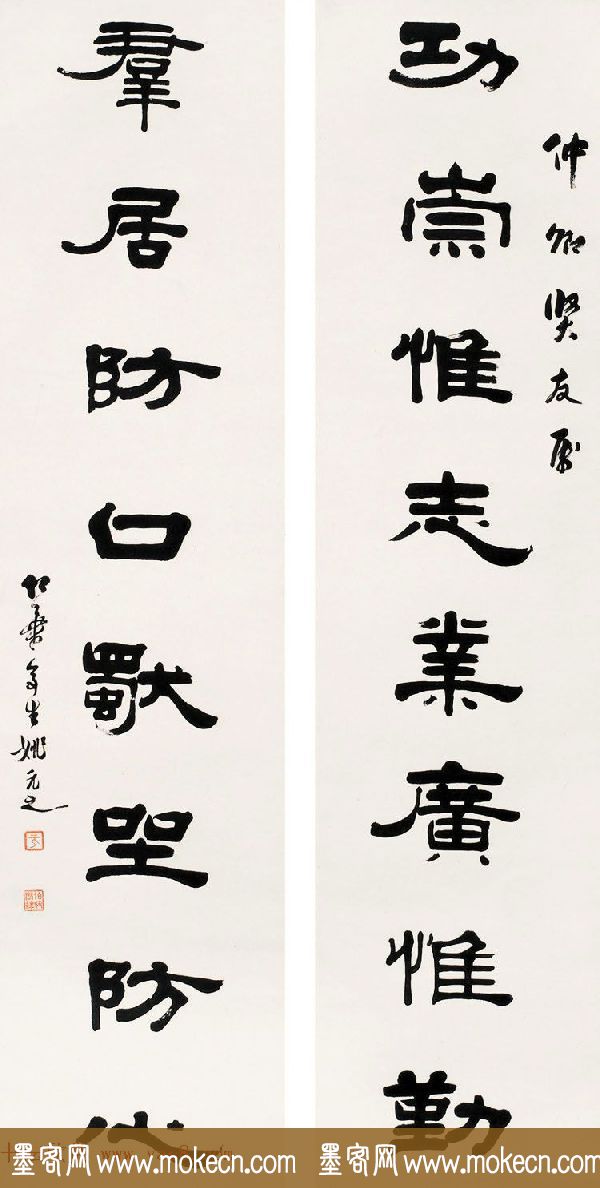 仲卿賢友屬
功崇惟志業廣惟勤
羣居防口獨坐防心
竹葉亭生姚元之
墨客网 www.mokecn.com 墨客网 www.mokecn.com